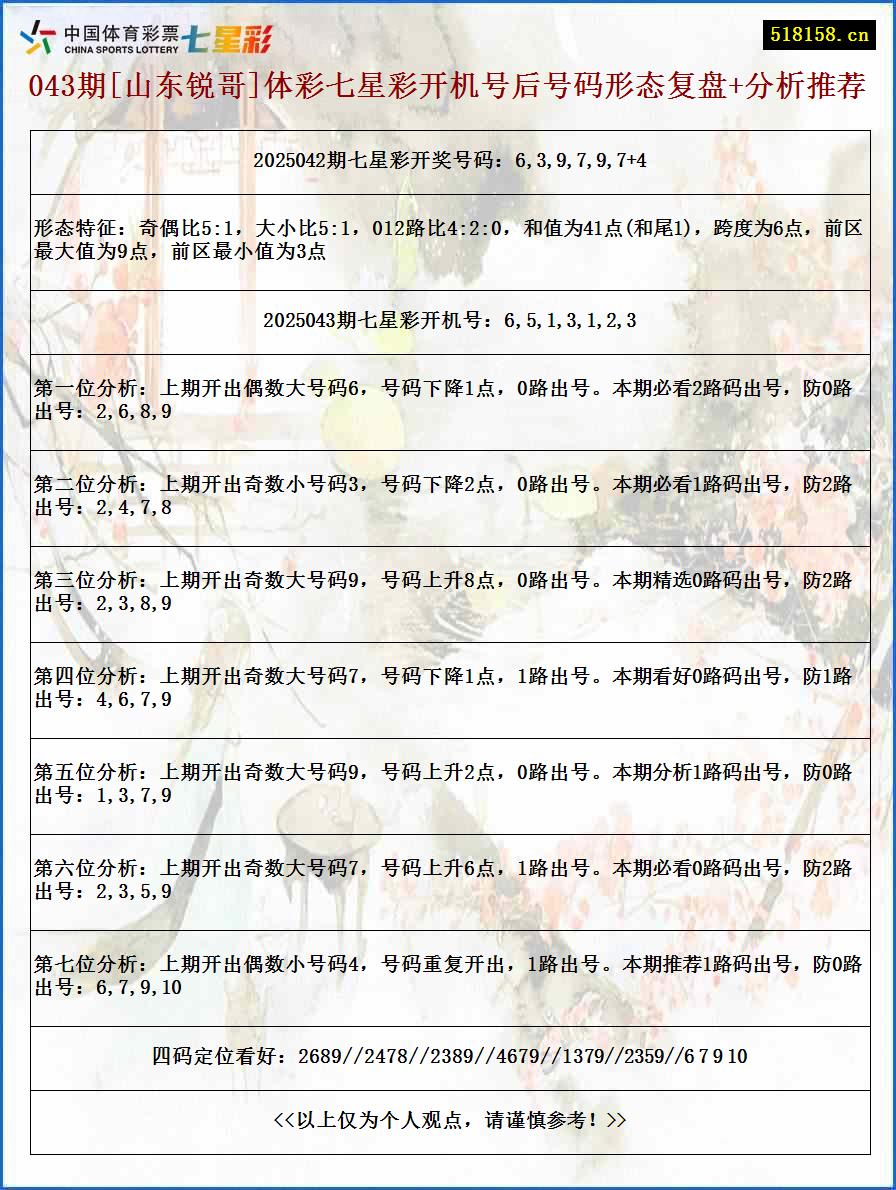 中国体育彩票
CHINA SPORTS LOTTERY
七星彩
518158.cn
043期[山东锐哥]体彩七星彩开机号后号码形态复盘+分析推荐
2025042期七星彩开奖号码：6,3,9,7,9,7+4
形态特征：奇偶比5:1，大小比5:1，012路比4:2:0，和值为41点(和尾1)，跨度为6点，前区
最大值为9点，前区最小值为3点
2025043期七星彩开机号：6,5,1,3,1,2,3
第一位分析：上期开出偶数大号码6，号码下降1点，0路出号。本期必看2路码出号，防0路
出号：2,6,8,9
第二位分析：上期开出奇数小号码3，号码下降2点，0路出号。本期必看1路码出号，防2路
出号：2,4,7,8
第三位分析：上期开出奇数大号码9，号码上升8点，0路出号。本期精选0路码出号，防2路
出号：2,3,8,9
第四位分析：上期开出奇数大号码7，号码下降1点，1路出号。本期看好0路码出号，防1路
出号：4,6,7,9
第五位分析：上期开出奇数大号码9，号码上升2点，0路出号。本期分析1路码出号，防0路
出号：1,3,7,9
第六位分析：上期开出奇数大号码7，号码上升6点，1路出号。本期必看0路码出号，防2路
出号：2,3,5,9
第七位分析：上期开出偶数小号码4，号码重复开出，1路出号。本期推荐1路码出号，防0路
出号：6,7,9,10
四码定位看好：2689//2478//2389//4679//1379//2359//6 7 9 10
<<以上仅为个人观点，请谨慎参考！>>